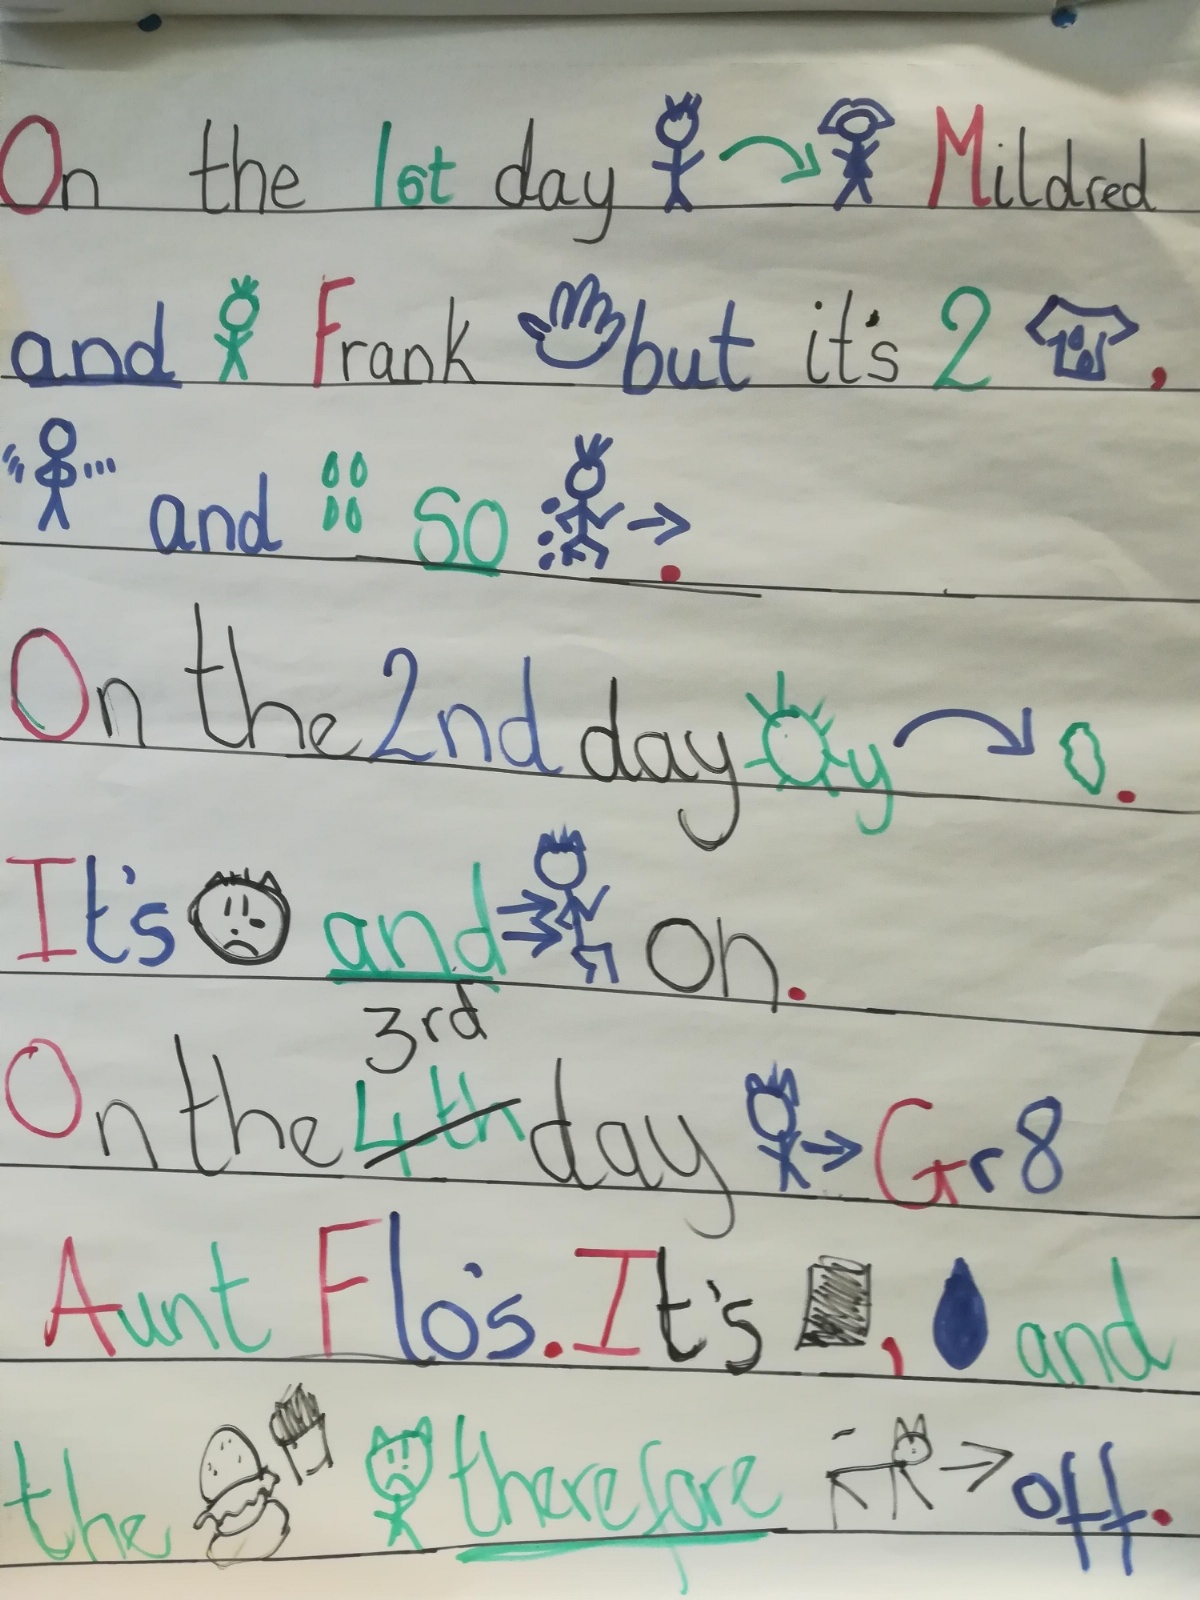 On the 1st day Mildred
and Frank but it's 2 ,
and so .
On the 2nd day y .
It's and on.
3rd
On the 4th day Gr8
Aunt Flo's. It's , and
the therefore off.